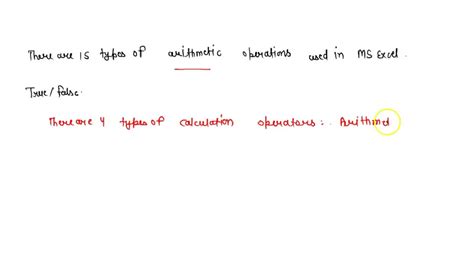 There are 15 types of arithmetic operations used in MS Excel.
True/false.
There are 4 types of calculation operators: Arithmet